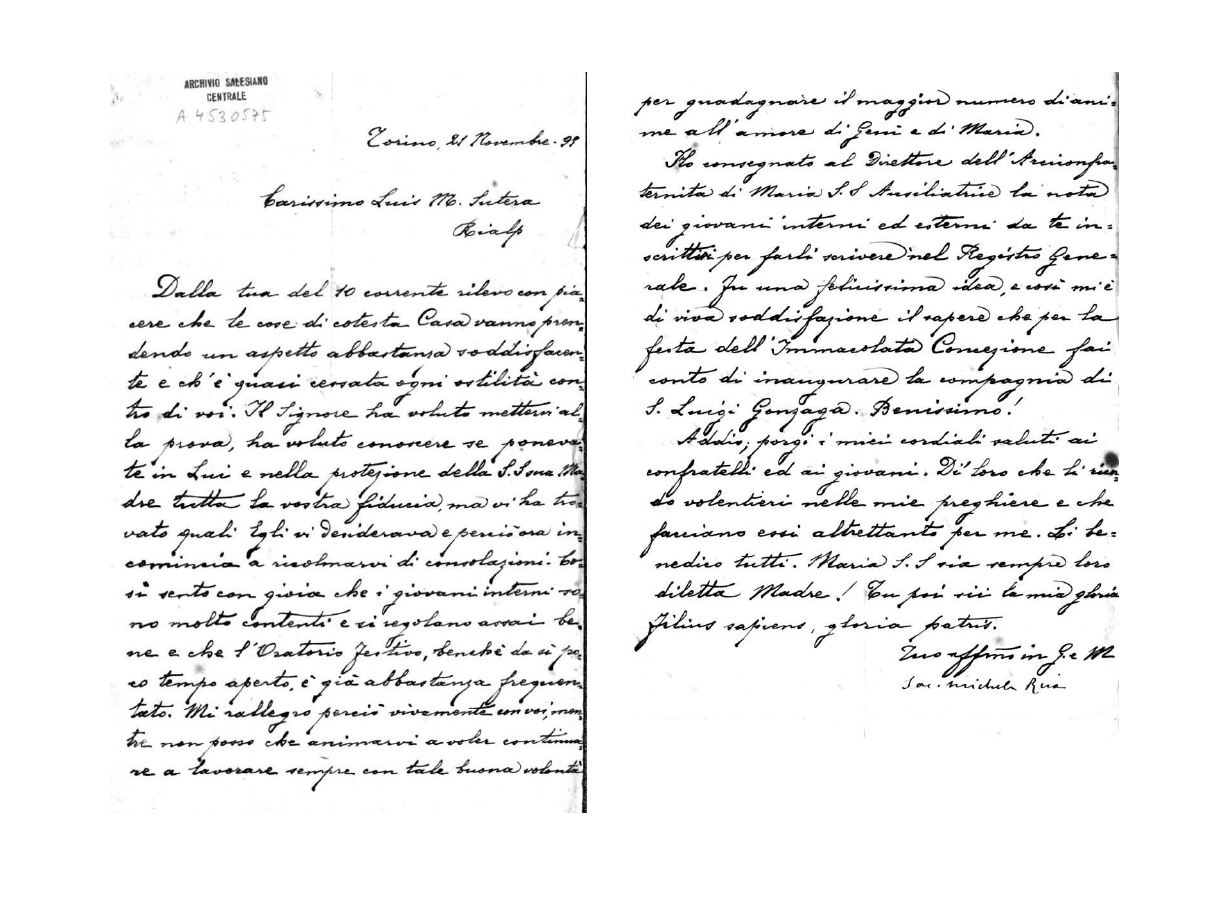 ARCHIVIO SALESIANO
CENTRALE
A 4530575
Torino, 21 Novembre - 98
Carissimo Luis M. Sutera
Rialp
Dalla tua del 10 corrente rilevo con pia=
cere che le cose di cotesta Casa vanno pren=
dendo un aspetto abbastanza soddisfacen=
te e ch'è quasi cessata ogni ostilità con=
tro di voi. Il Signore ha voluto mettervi al=
la prova, ha voluto conoscere se poneva=
te in Lui e nella protezione della S.S sua Ma=
dre tutta la vostra fiducia, ma vi ha tro=
vato quali Egli vi desiderava e perciò ora in=
comincia a ricolmarvi di consolazioni. Co=
sì sento con gioia che i giovani interni so=
no molto contenti e si regolano assai be=
ne e che l'Oratorio Festivo, benchè da sì po=
co tempo aperto, è già abbastanza frequen=
tato. Mi rallegro perciò vivamente con voi, men=
tre non posso che animarvi a voler continua=
re a lavorare sempre con tale buona volontà
per guadagnare il maggior numero di ani=
me all'amore di Gesù e di Maria.
Ho consegnato al Direttore dell'Arciconfra=
ternita di Maria S.S Ausiliatrice la nota
dei giovani interni ed esterni da te in=
scritti per farli scrivere nel Registro Gene=
rale. Fu una felicissima idea, e così mi è
di viva soddisfazione il sapere che per la
festa dell'Immacolata Concezione fai
conto di inaugurare la compagnia di
S. Luigi Gonzaga. Benissimo!
Addio; porgi i miei cordiali saluti ai
confratelli ed ai giovani. Di' loro che li ricor=
do volentieri nelle mie preghiere e che
facciano essi altrettanto per me. Li be=
nedico tutti. Maria S.S sia sempre loro
diletta Madre! Tu poi sii la mia gloria
Filius sapiens, gloria patris.
Tuo affmo in G. e M
Sac. Michele Rua